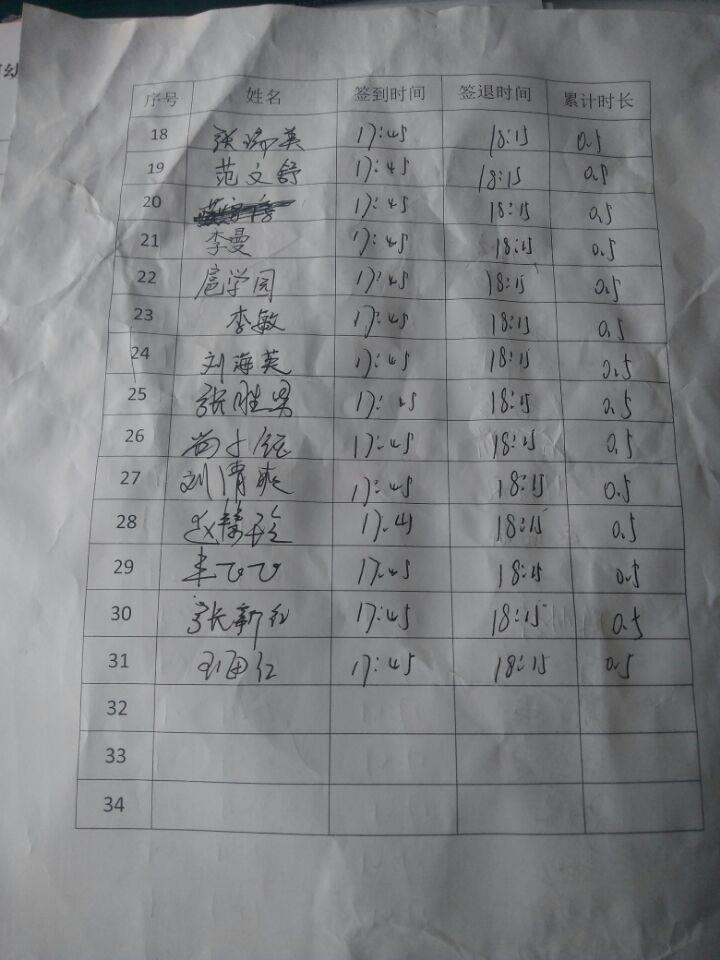 序号 姓名 签到时间 签退时间 累计时长
18 张瑞英 17:45 18:15 0.5
19 范文舒 17:45 18:15 0.5
20 17:45 18:15 0.5
21 李曼 17:45 18:15 0.5
22 扈学园 17:45 18:15 0.5
23 李敏 17:45 18:15 0.5
24 刘海英 17:45 18:15 0.5
25 张胜男 17:45 18:15 0.5
26 17:45 18:15 0.5
27 刘清爽 17:45 18:15 0.5
28 18:15 0.5
29 17:45 18:15 0.5
30 张新红 17:45 18:15 0.5
31 红 17:45 18:15 0.5
32
33
34